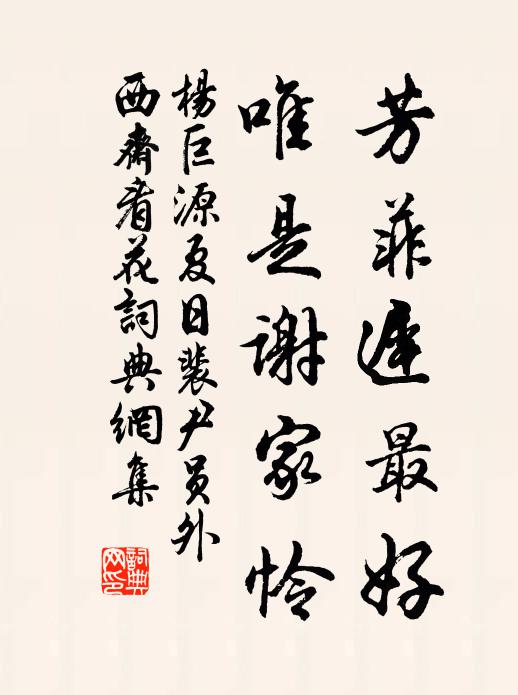 芳菲遲最好
唯是謝家憐
楊巨源夏日裴尹員外
西齋看花詞典網集
詞典
网印